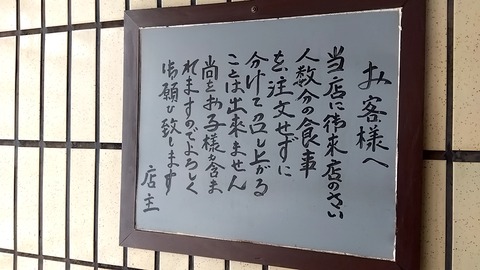 お客様へ
当店に御来店のさい
人数分の食事
を、注文せずに
分けて召し上がる
ことは出来ません
尚、お子様も含ま
れますのでよろしく
御願い致します
店主